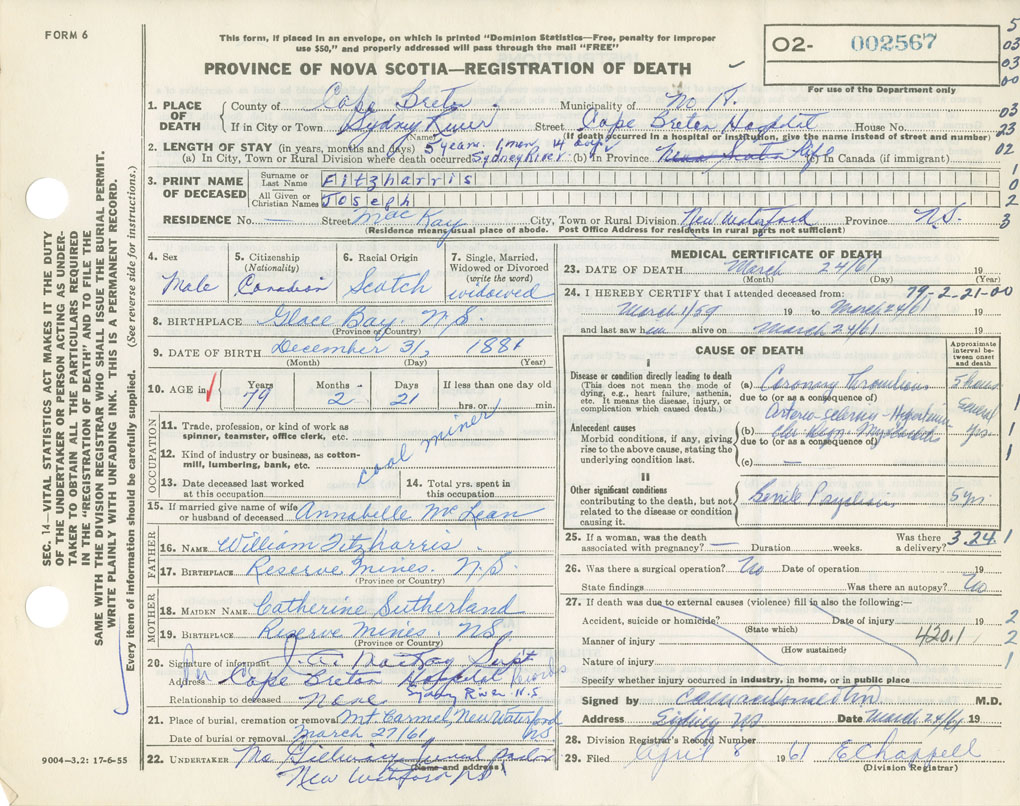 FORM 6
This form, if placed in an envelope, on which is printed "Dominion Statistics—Free, penalty for improper
use $50," and properly addressed will pass through the mail "FREE"
PROVINCE OF NOVA SCOTIA—REGISTRATION OF DEATH
O2- 002567
For use of the Department only
5
03
03
00
03
23
02
1
0
2
3
SEC. 14—VITAL STATISTICS ACT MAKES IT THE DUTY
OF THE UNDERTAKER OR PERSON ACTING AS UNDER-
TAKER TO OBTAIN ALL THE PARTICULARS REQUIRED
IN THE "REGISTRATION OF DEATH" AND TO FILE THE
SAME WITH THE DIVISION REGISTRAR WHO SHALL ISSUE THE BURIAL PERMIT.
WRITE PLAINLY WITH UNFADING INK. THIS IS A PERMANENT RECORD.
Every item of information should be carefully supplied. (See reverse side for instructions.)
1. PLACE OF DEATH
County of Cape Breton Municipality of
If in City or Town Sydney River Street Cape Breton Hospital House No.
(Name) (If death occurred in a hospital or institution, give the name instead of street and number)
2. LENGTH OF STAY (in years, months and days) 5 years. 1 mon 14 days
(a) In City, Town or Rural Division where death occurred Sydney River (b) in Province Nova Scotia life (c) in Canada (if immigrant)
3. PRINT NAME OF DECEASED
Surname or Last Name Fitzharris
All Given or Christian Names Joseph
RESIDENCE No. — Street MacKay City, Town or Rural Division New Waterford Province N.S.
(Residence means usual place of abode. Post Office Address for residents in rural parts not sufficient)
4. Sex Male
5. Citizenship (Nationality) Canadian
6. Racial Origin Scotch
7. Single, Married, Widowed or Divorced (write the word) widowed
8. BIRTHPLACE Glace Bay. N.S.
(Province or Country)
9. DATE OF BIRTH December 3, 1881
(Month) (Day) (Year)
10. AGE in Years 79 Months 2 Days 21 If less than one day old
hrs. or min.
OCCUPATION
11. Trade, profession, or kind of work as
spinner, teamster, office clerk, etc.
coal miner
12. Kind of industry or business, as cotton-
mill, lumbering, bank, etc.
13. Date deceased last worked at this occupation
14. Total yrs. spent in this occupation
15. If married give name of wife or husband of deceased Annabelle McLean
FATHER
16. NAME William Fitzharris
17. BIRTHPLACE Reserve Mines. N.S.
(Province or Country)
MOTHER
18. MAIDEN NAME Catherine Sutherland
19. BIRTHPLACE Reserve Mines. NS
(Province or Country)
20. Signature of informant Supt
Address Per Cape Breton Hospital Records
Sydney River N.S
Relationship to deceased None
21. Place of burial, cremation or removal Mt. Carmel, New Waterford
NS
Date of burial or removal March 27/61
22. UNDERTAKER
(Name and address)
New Waterford NS
9004—3.2: 17-6-55
MEDICAL CERTIFICATE OF DEATH
23. DATE OF DEATH March 24/61 19
(Month) (Day) (Year)
24. I HEREBY CERTIFY that I attended deceased from: 79-2-21-00
March 1/59 19 to March 24/61 19
and last saw him alive on March 24/61 19
CAUSE OF DEATH
Approximate interval between onset and death
I
Disease or condition directly leading to death
(This does not mean the mode of dying, e.g., heart failure, asthenia, etc. It means the disease, injury, or complication which caused death.)
(a) Coronary Thrombosis 5 hours
due to (or as a consequence of)
Arterio-sclerosis - Hypertension several
Antecedent causes
Morbid conditions, if any, giving rise to the above cause, stating the underlying condition last.
(b) Chr. Myocarditis yrs
due to (or as a consequence of)
(c) —
II
Other significant conditions
contributing to the death, but not related to the disease or condition causing it.
Senile Psychosis 5 yrs
25. If a woman, was the death associated with pregnancy? — Duration weeks. Was there a delivery? 3.24.1
26. Was there a surgical operation? No Date of operation 19
State findings Was there an autopsy? No
27. If death was due to external causes (violence) fill in also the following:—
Accident, suicide or homicide? Date of injury 19
(State which)
Manner of injury 420.1
(How sustained)
Nature of injury
Specify whether injury occurred in industry, in home, or in public place
Signed by M.D.
Address Sydney NS Date March 24/61 19
28. Division Registrar's Record Number
29. Filed April 6 1961 E Chappell
(Division Registrar)
1
1
1
1
2
2
1